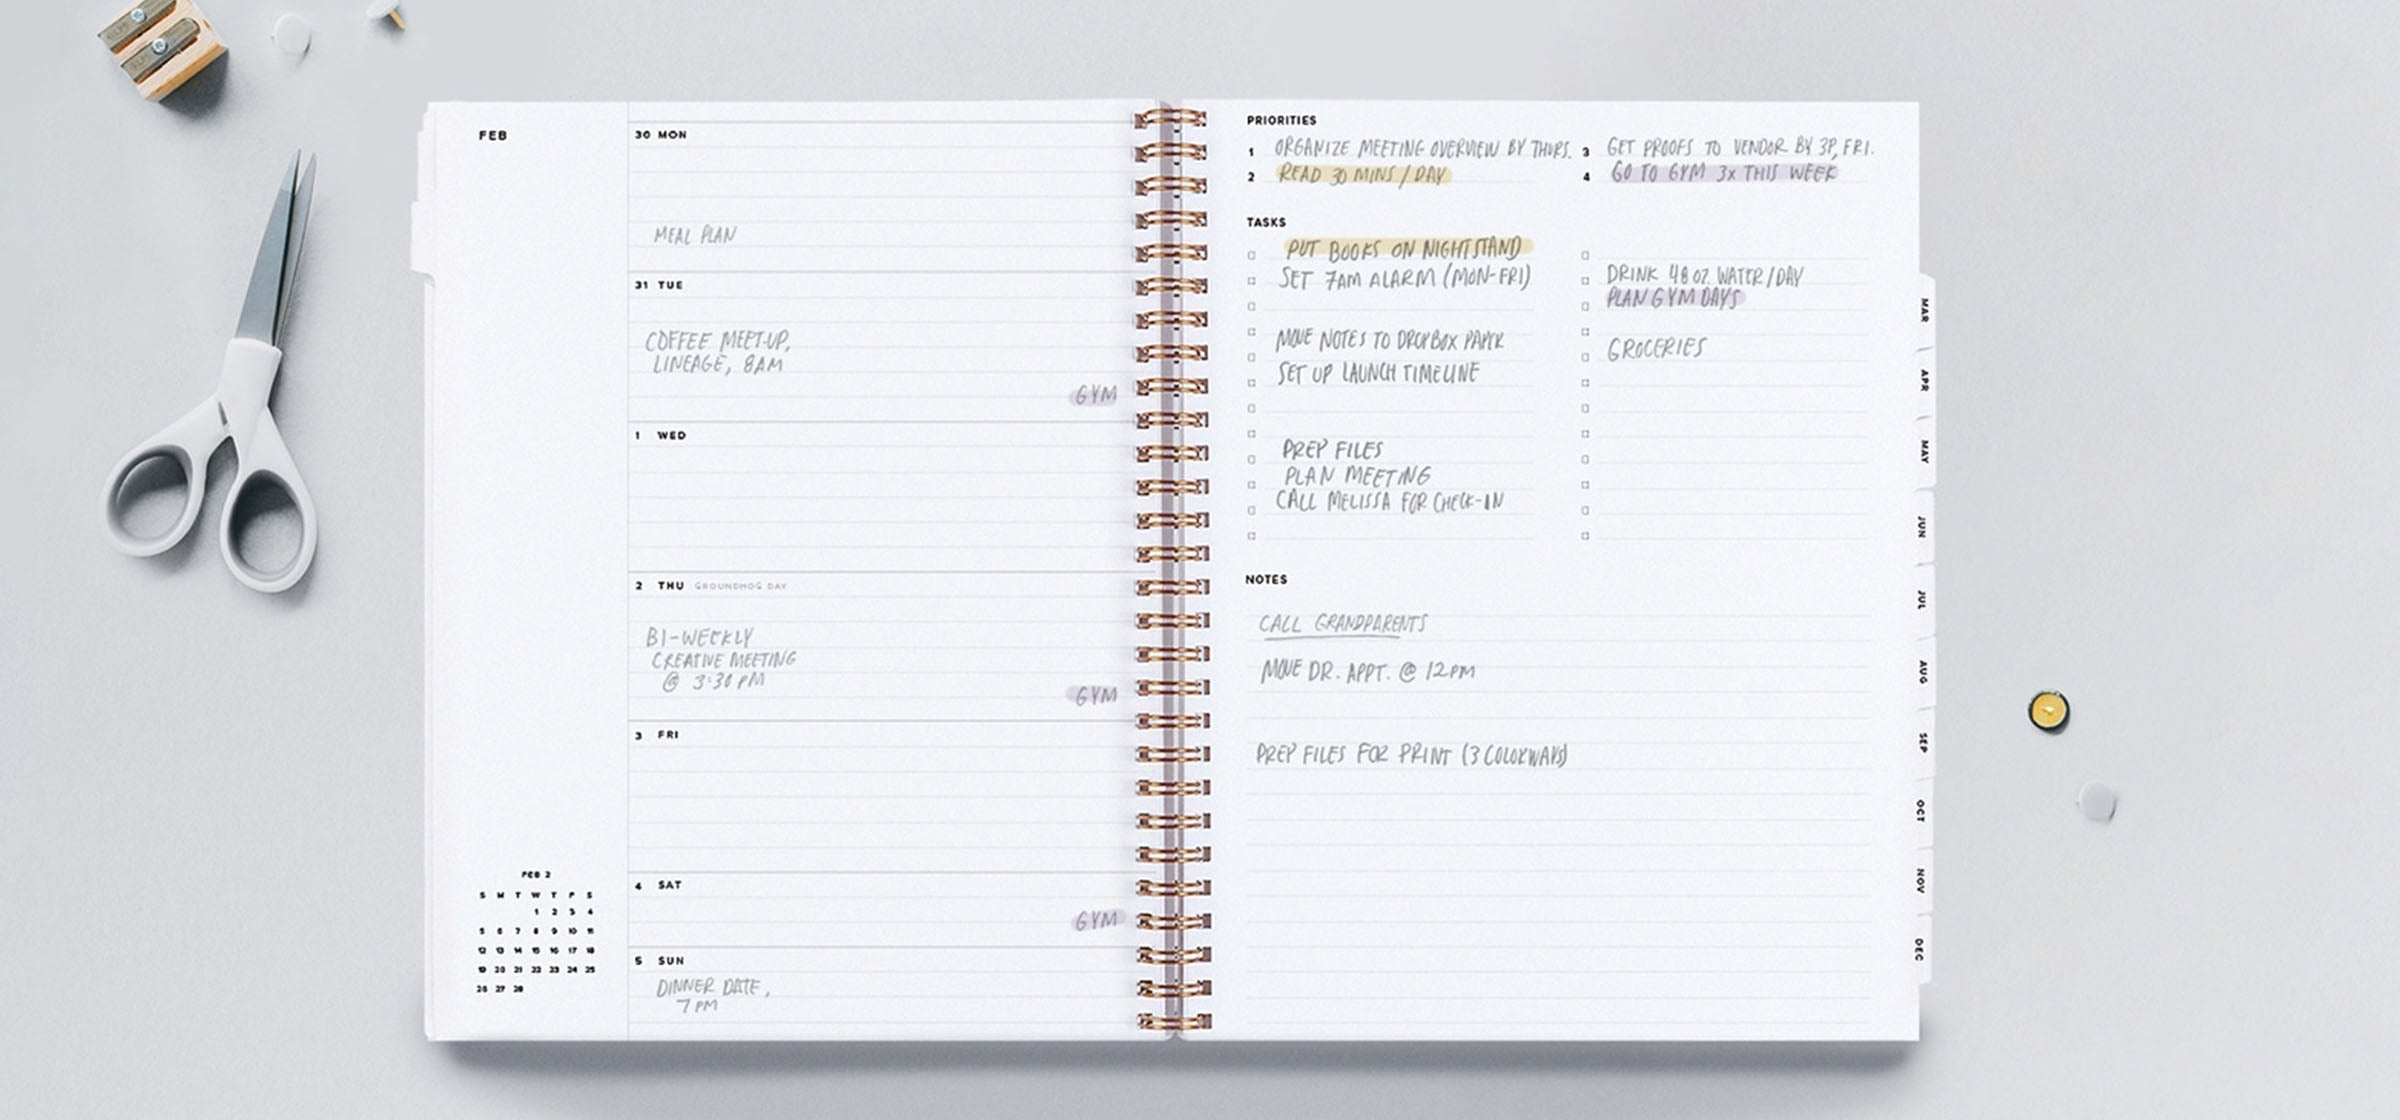 FEB
30 MON
MEAL PLAN
31 TUE
COFFEE MEET-UP,
LINEAGE, 8AM
GYM
1 WED
2 THU GROUNDHOG DAY
BI-WEEKLY
CREATIVE MEETING
@ 3:30 PM
GYM
3 FRI
4 SAT
GYM
5 SUN
DINNER DATE,
7 PM
FEB 2
S M T W T F S
1 2 3 4
5 6 7 8 9 10 11
12 13 14 15 16 17 18
19 20 21 22 23 24 25
26 27 28
PRIORITIES
1 ORGANIZE MEETING OVERVIEW BY THURS.
2 READ 30 MINS / DAY
3 GET PROOFS TO VENDOR BY 3P, FRI.
4 GO TO GYM 3x THIS WEEK
TASKS
PUT BOOKS ON NIGHTSTAND
SET 7AM ALARM (MON-FRI)
MOVE NOTES TO DROPBOX PAPER
SET UP LAUNCH TIMELINE
PREP FILES
PLAN MEETING
CALL MELISSA FOR CHECK-IN
DRINK 48 OZ. WATER / DAY
PLAN GYM DAYS
GROCERIES
NOTES
CALL GRANDPARENTS
MOVE DR. APPT. @ 12PM
PREP FILES FOR PRINT (3 COLORWAYS)
MAR
APR
MAY
JUN
JUL
AUG
SEP
OCT
NOV
DEC